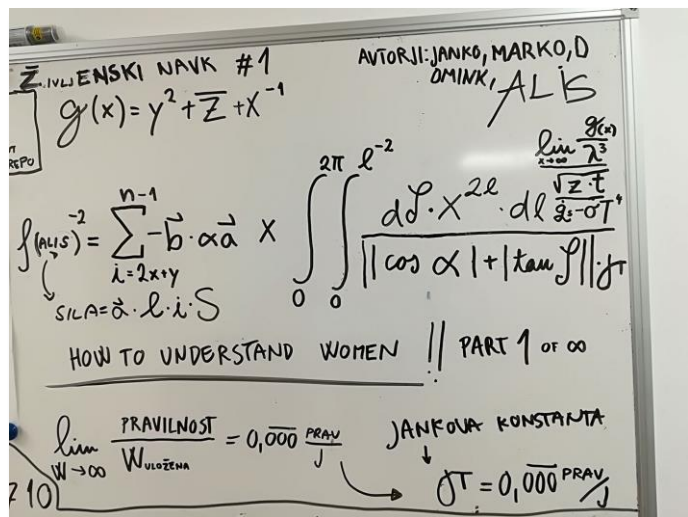 Ž.IVLJENSKI NAVK #1
AVTORJI: JANKO, MARKO, D
OMINK, ALIS
g(x) = y² + z̄ + x⁻¹
REPO
f(ALIS)⁻² = Σ_{i=2x+y}^{n-1} -b⃗ · αa⃗ × ∫₀^{2π} ∫₀^{e⁻²}
lim_{x→∞} g(x)/λ³
√z·t
dφ · x^{2l} · dl
||cos α| + |tan φ|| · γT
SILA = a⃗ · l · i · S
HOW TO UNDERSTAND WOMEN !! PART 1 OF ∞
lim_{W→∞} PRAVILNOST / W_{VLOŽENA} = 0,0̅0̅0̅ PRAV/J
JANKOVA KONSTANTA
γT = 0,0̅0̅0̅ PRAV/J
210